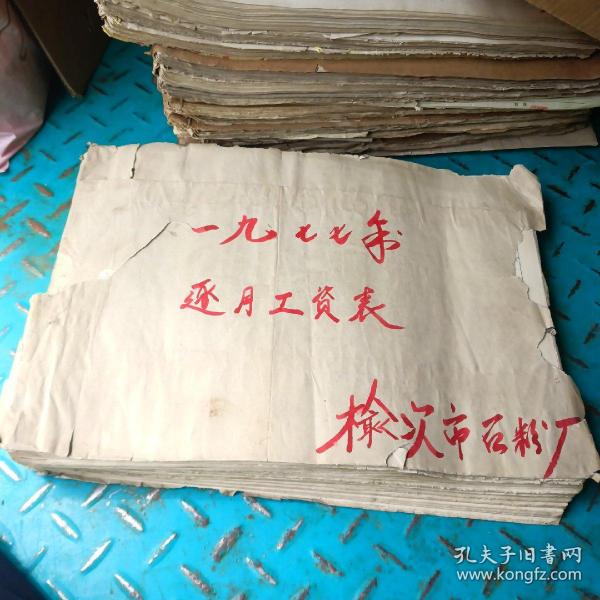 一九七七年
逐月工资表
榆次市石粉厂
孔夫子旧书网
www.kongfz.com